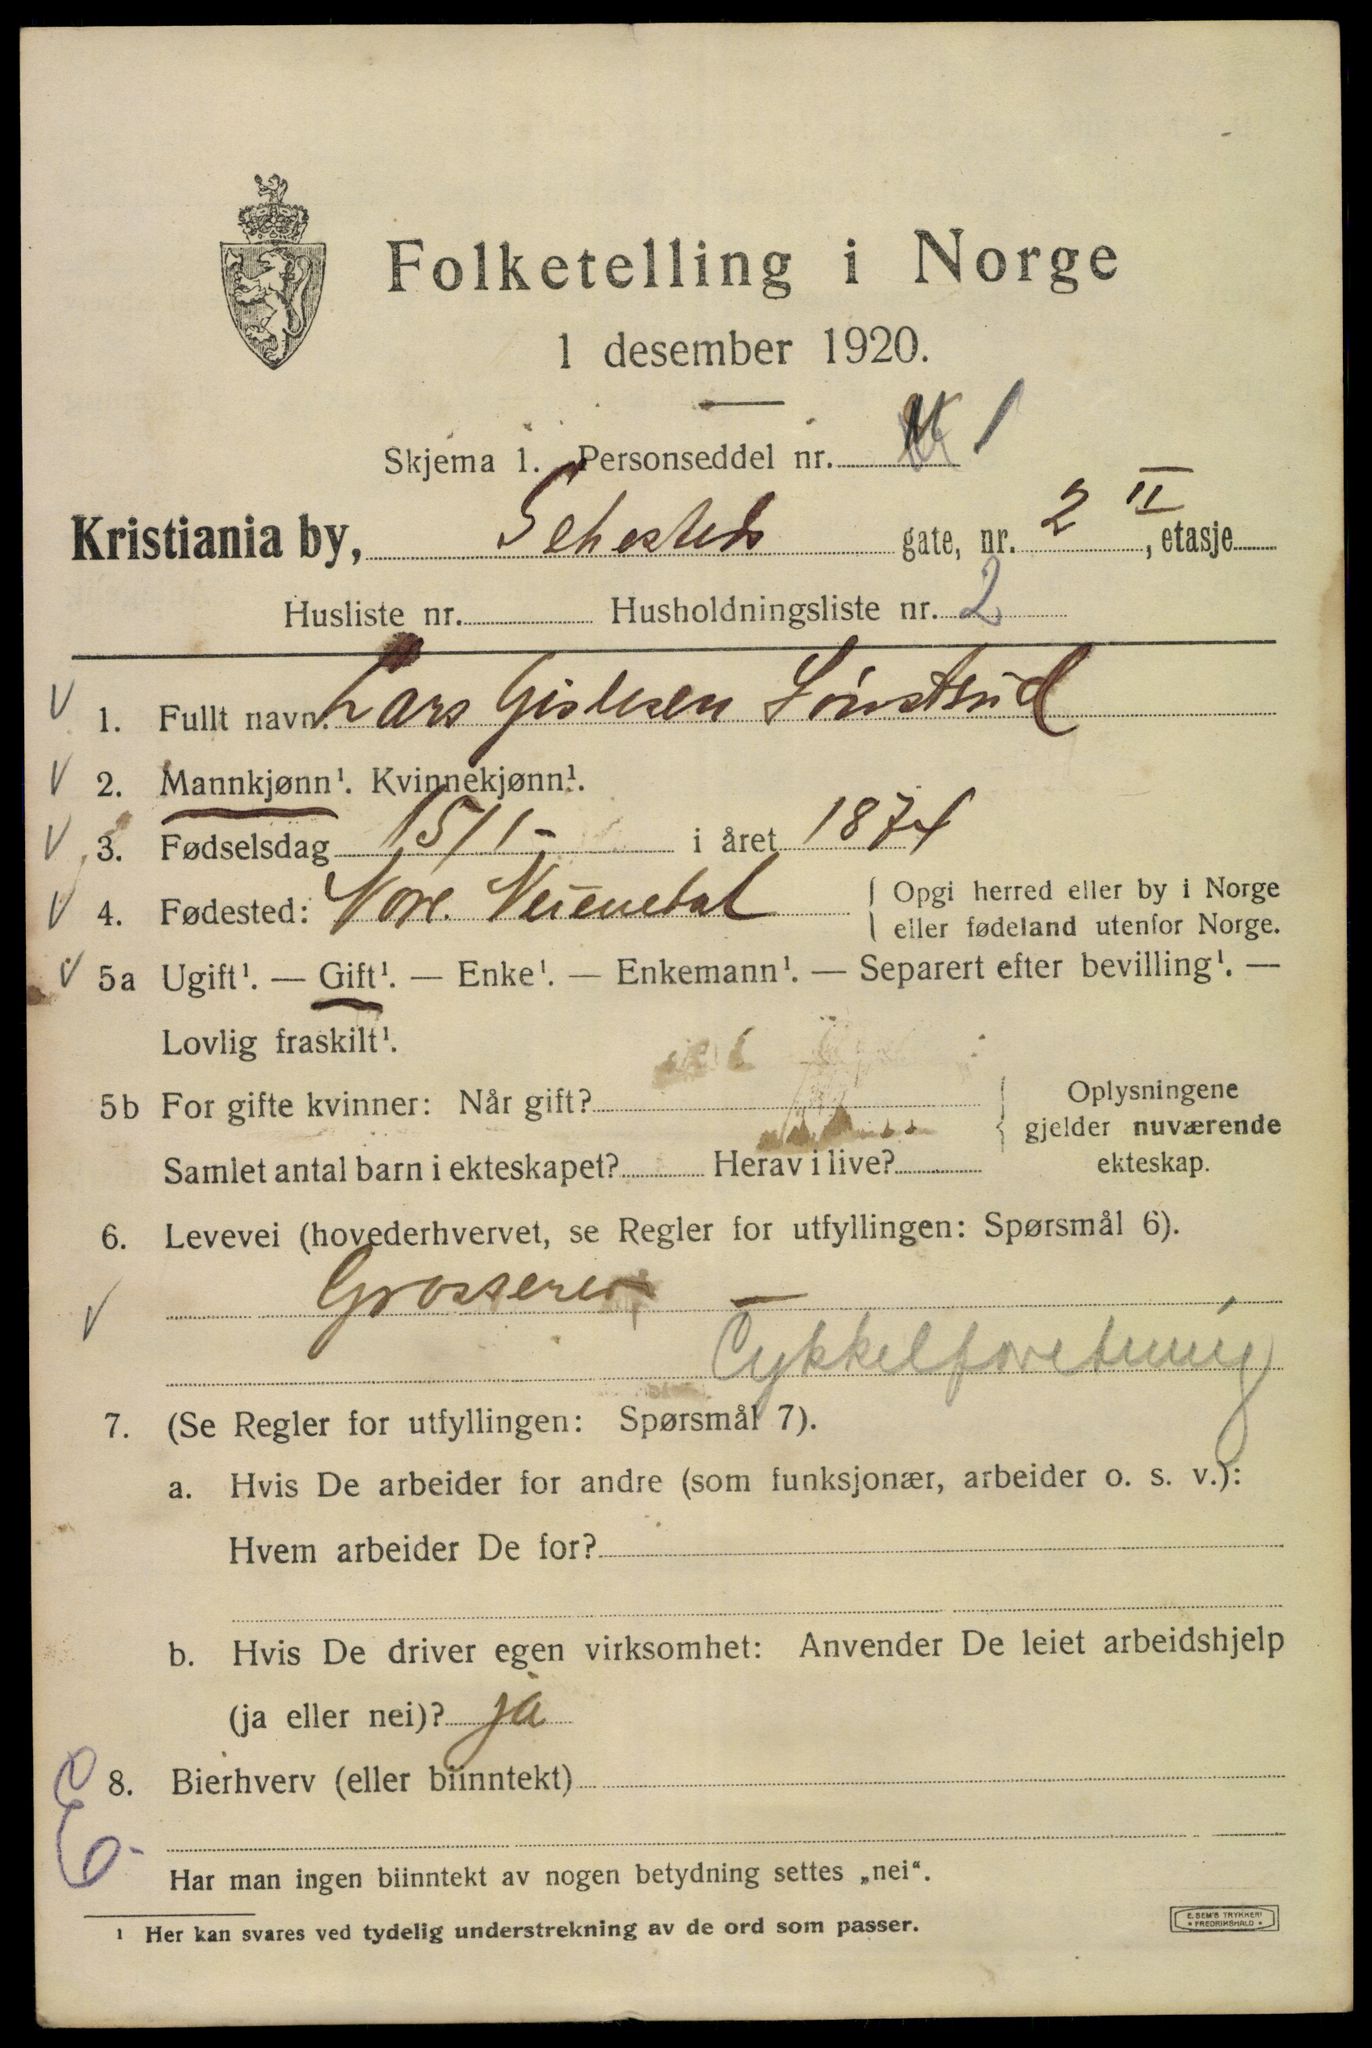 Folketelling i Norge
1 desember 1920.
Skjema 1. Personseddel nr. 1
Kristiania by, Sehesteds gate, nr. 2 II, etasje
Husliste nr. Husholdningsliste nr. 2
1. Fullt navn: Lars Gislesen Sønstrud
2. Mannkjønn¹. Kvinnekjønn¹.
3. Fødselsdag 15/1- i året 1874
4. Fødested: Nore. { Opgi herred eller by i Norge
eller fødeland utenfor Norge.
5a Ugift¹. — Gift¹. — Enke¹. — Enkemann¹. — Separert efter bevilling¹. —
Lovlig fraskilt¹.
5b For gifte kvinner: Når gift? { Oplysningene
gjelder nuværende
Samlet antal barn i ekteskapet? Herav i live? ekteskap.
6. Levevei (hovederhvervet, se Regler for utfyllingen: Spørsmål 6).
Grosserer —
Cykkelforetning
7. (Se Regler for utfyllingen: Spørsmål 7).
a. Hvis De arbeider for andre (som funksjonær, arbeider o. s. v.):
Hvem arbeider De for?
b. Hvis De driver egen virksomhet: Anvender De leiet arbeidshjelp
(ja eller nei)? ja
8. Bierhverv (eller biinntekt)
Har man ingen biinntekt av nogen betydning settes „nei“.
¹ Her kan svares ved tydelig understrekning av de ord som passer.
E. SEM'S TRYKKERI
* FREDRIKSHALD *